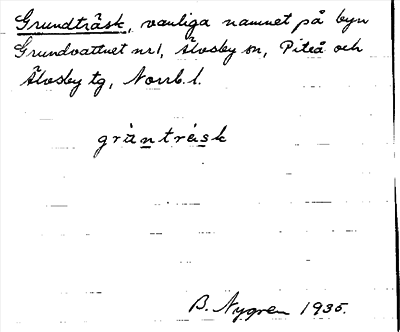 Grundträsk, vanliga namnet på byn
Grundvattnet nr 1, Älvsby sn, Piteå och
Älvsby tg, Norrb. l.
gränträsk
B. Nygren 1935.